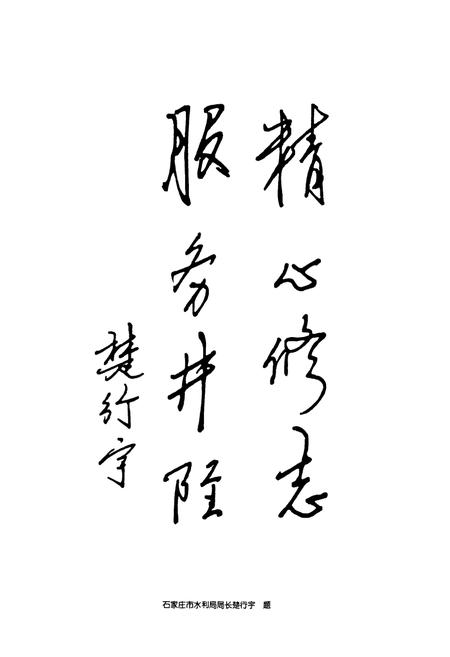 精心修志
服务井陉
楚行宇
石家庄市水利局局长楚行宇 题